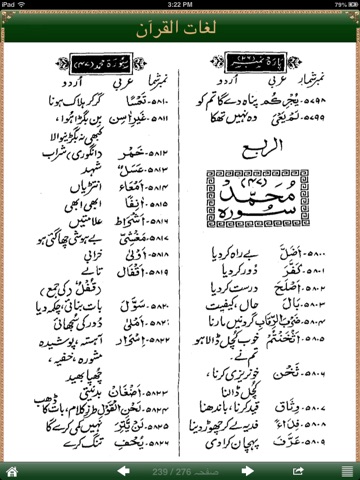 iPad
3:22 PM
79%
لغات القرآن
پارہ نمبر (۲۶)
نمبر شمار عربی اردو
۵۷۹۸- يُجِرْكُمْ پناہ دے گا تم کو
۵۷۹۹- لَمْ يَعْيَ وہ نہیں تھکا
الربع
(۴۷)
سُورَة مُحَمَّد
۵۸۰۰- اَضَلَّ بے راہ کر دیا
۵۸۰۱- كَفَّرَ دور کر دیا
۵۸۰۲- اَصْلَحَ درست کر دیا
۵۸۰۳- بَالَ حال، کیفیت
۵۸۰۴- ضَرْبَ الرِّقَابِ گردنیں مارنا
۵۸۰۵- اَثْخَنْتُمْ خوب کچل ڈالا ہو
تم نے
۵۸۰۶- ثَخْن خونریزی کرنا،
کچل ڈالنا
۵۸۰۷- وِثَاق قید کرنا، باندھنا
۵۸۰۸- فِدَاء فدیہ لے کر چھوڑ دینا
۵۸۰۹- عَرَّفَ پہچان کرا دی
سورة محمد (۴۷)
نمبر شمار عربی اردو
۵۸۱۰- تَعْسًا گر کر ہلاک ہونا
۵۸۱۱- غَيْرِ اٰسِن بن بگڑا ہوا،
کبھی نہ بگڑنے والا
۵۸۱۲- خَمْر (انگوری) شراب
۵۸۱۳- عَسَل شہد
۵۸۱۴- اَمْعَاء انتڑیاں
۵۸۱۵- اٰنِفًا ابھی ابھی
۵۸۱۶- اَشْرَاط علامتیں
۵۸۱۷- مَغْشِيّ بے ہوشی چھا گئی ہو
۵۸۱۸- اَوْلٰى خرابی
۵۸۱۹- اَقْفَال تالے
(قُفْل کی جمع)
۵۸۲۰- سَوَّلَ بات بنائی، چکمہ دیا
۵۸۲۱- اَمْلٰى دور کی سجھائی
۵۸۲۲- اِسْرَار آہستہ، پوشیدہ
مشورہ، خفیہ،
چھپا بھید
۵۸۲۳- اَضْغَان بدنیتی
۵۸۲۴- لَحْنِ الْقَوْل طرز کلام، بات کا ڈھب
۵۸۲۵- لَنْ يَّتِرَ کمی نہ کرے گا
۵۸۲۶- يُحْفِ تنگ کرے
صفحہ 239 / 276